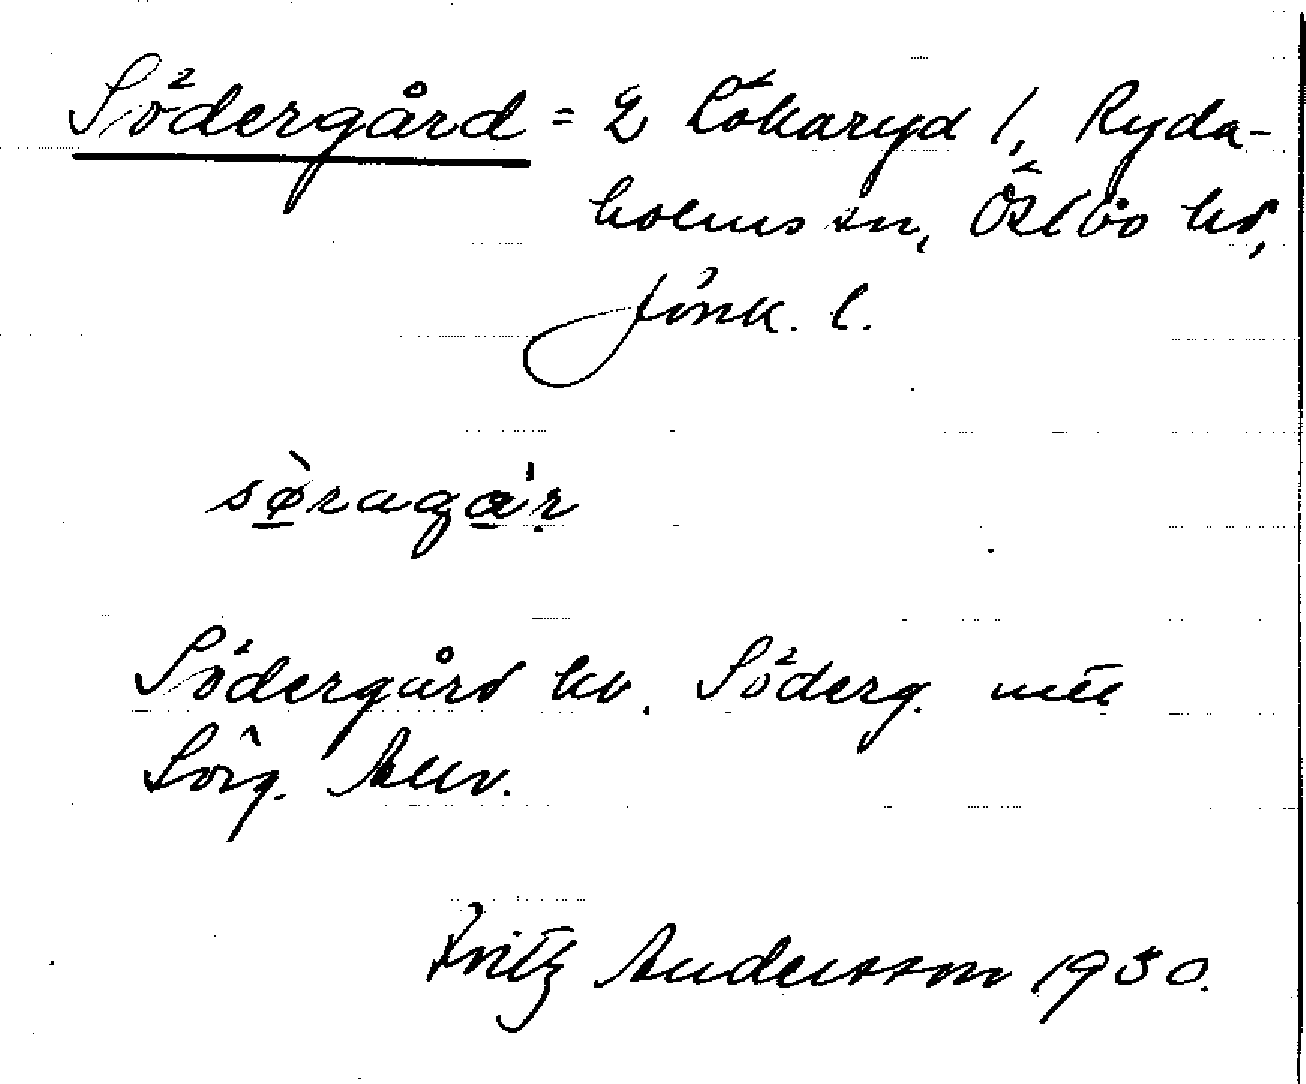 Södergård = 2 Lökaryd 1, Ryda-
holms sn, Östbo hd,
Jönk. l.
sø̀ragá̱ṛ
Södergård hv. Söderg.
Sörg.
Fritz Andersson 1930.